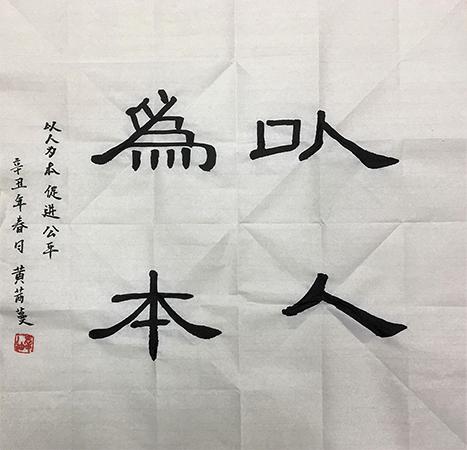 以人
為本
以人为本 促进公平
辛丑年春月 黄芮蔓